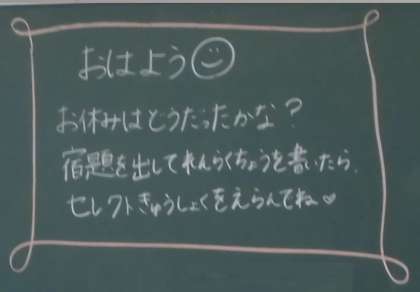 おはよう☺
お休みはどうだったかな?
宿題を出してれんらくちょうを書いたら、
セレクトきゅうしょくをえらんでね♡